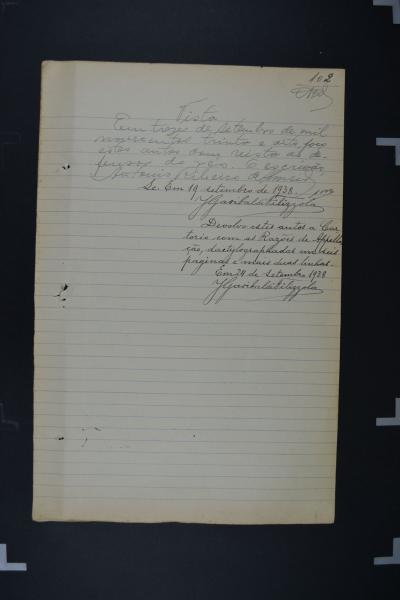 102
Vista
Em treze de Setembro de mil
novecentos trinta e oito faço
estes autos com vista ao de-
fensor do réo. O escrivão,
Antonio Ribeiro
Sc. Em 19 setembro de 1938.
J Garibaldi Filizzola
Devolvo estes autos a Car
torio com as Razões de Appella
ção, dactylographadas em seis
paginas e mais duas linhas.
Em 24 de Setembro 1938
J Garibaldi Filizzola